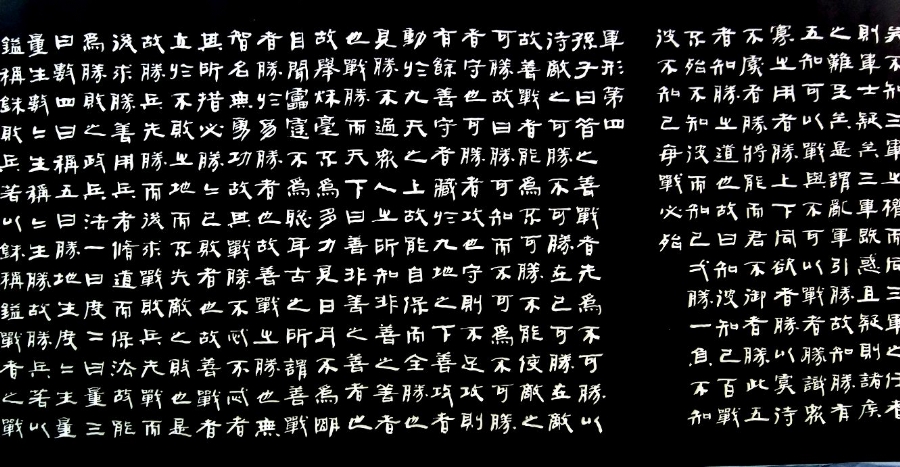 矣不知三軍之權而同三軍之任者
則軍士疑矣三軍既惑且疑則諸侯
之難至矣是謂亂軍引勝故知勝有
五知可以戰與不可以戰者勝識衆
寡之用者勝上下同欲者勝以虞待
不虞者勝將能而君不御者勝此五
者知勝之道也故曰知彼知己百戰
不殆不知彼而知己弌勝一負不知
彼不知己每戰必殆
軍形第四
孫子曰昔之善戰者先爲不可勝以
待敵之可勝不可勝在己可勝在敵
故善戰者能爲不可勝不能使敵之
可勝故曰勝可知而不可爲不可勝
者守也可勝者攻也守則不足攻則
有餘善守者藏於九地之下善攻者
動於九天之上故能自保而全勝也
見勝不過衆人之所知非善之善者
也戰勝而天下曰善非善之善者也
故舉秋毫不爲多力見日月不爲明
目聞雷霆不爲聰耳古之所謂善戰
者勝於易勝者也故善戰之勝也無
智名無勇功故其戰勝不忒不忒者
其所措必勝〻已敗者也故善戰者
立於不敗之地而不失敵之敗也是
故勝兵先勝而後求戰敗兵先戰而
後求勝善用兵者脩道而保法故能
爲勝敗之政兵法一曰度二曰量三
曰數四曰稱五曰勝地生度〻生量
量生數〻生稱〻生勝故勝兵若以
鎰稱銖敗兵若以銖稱鎰戰者之戰